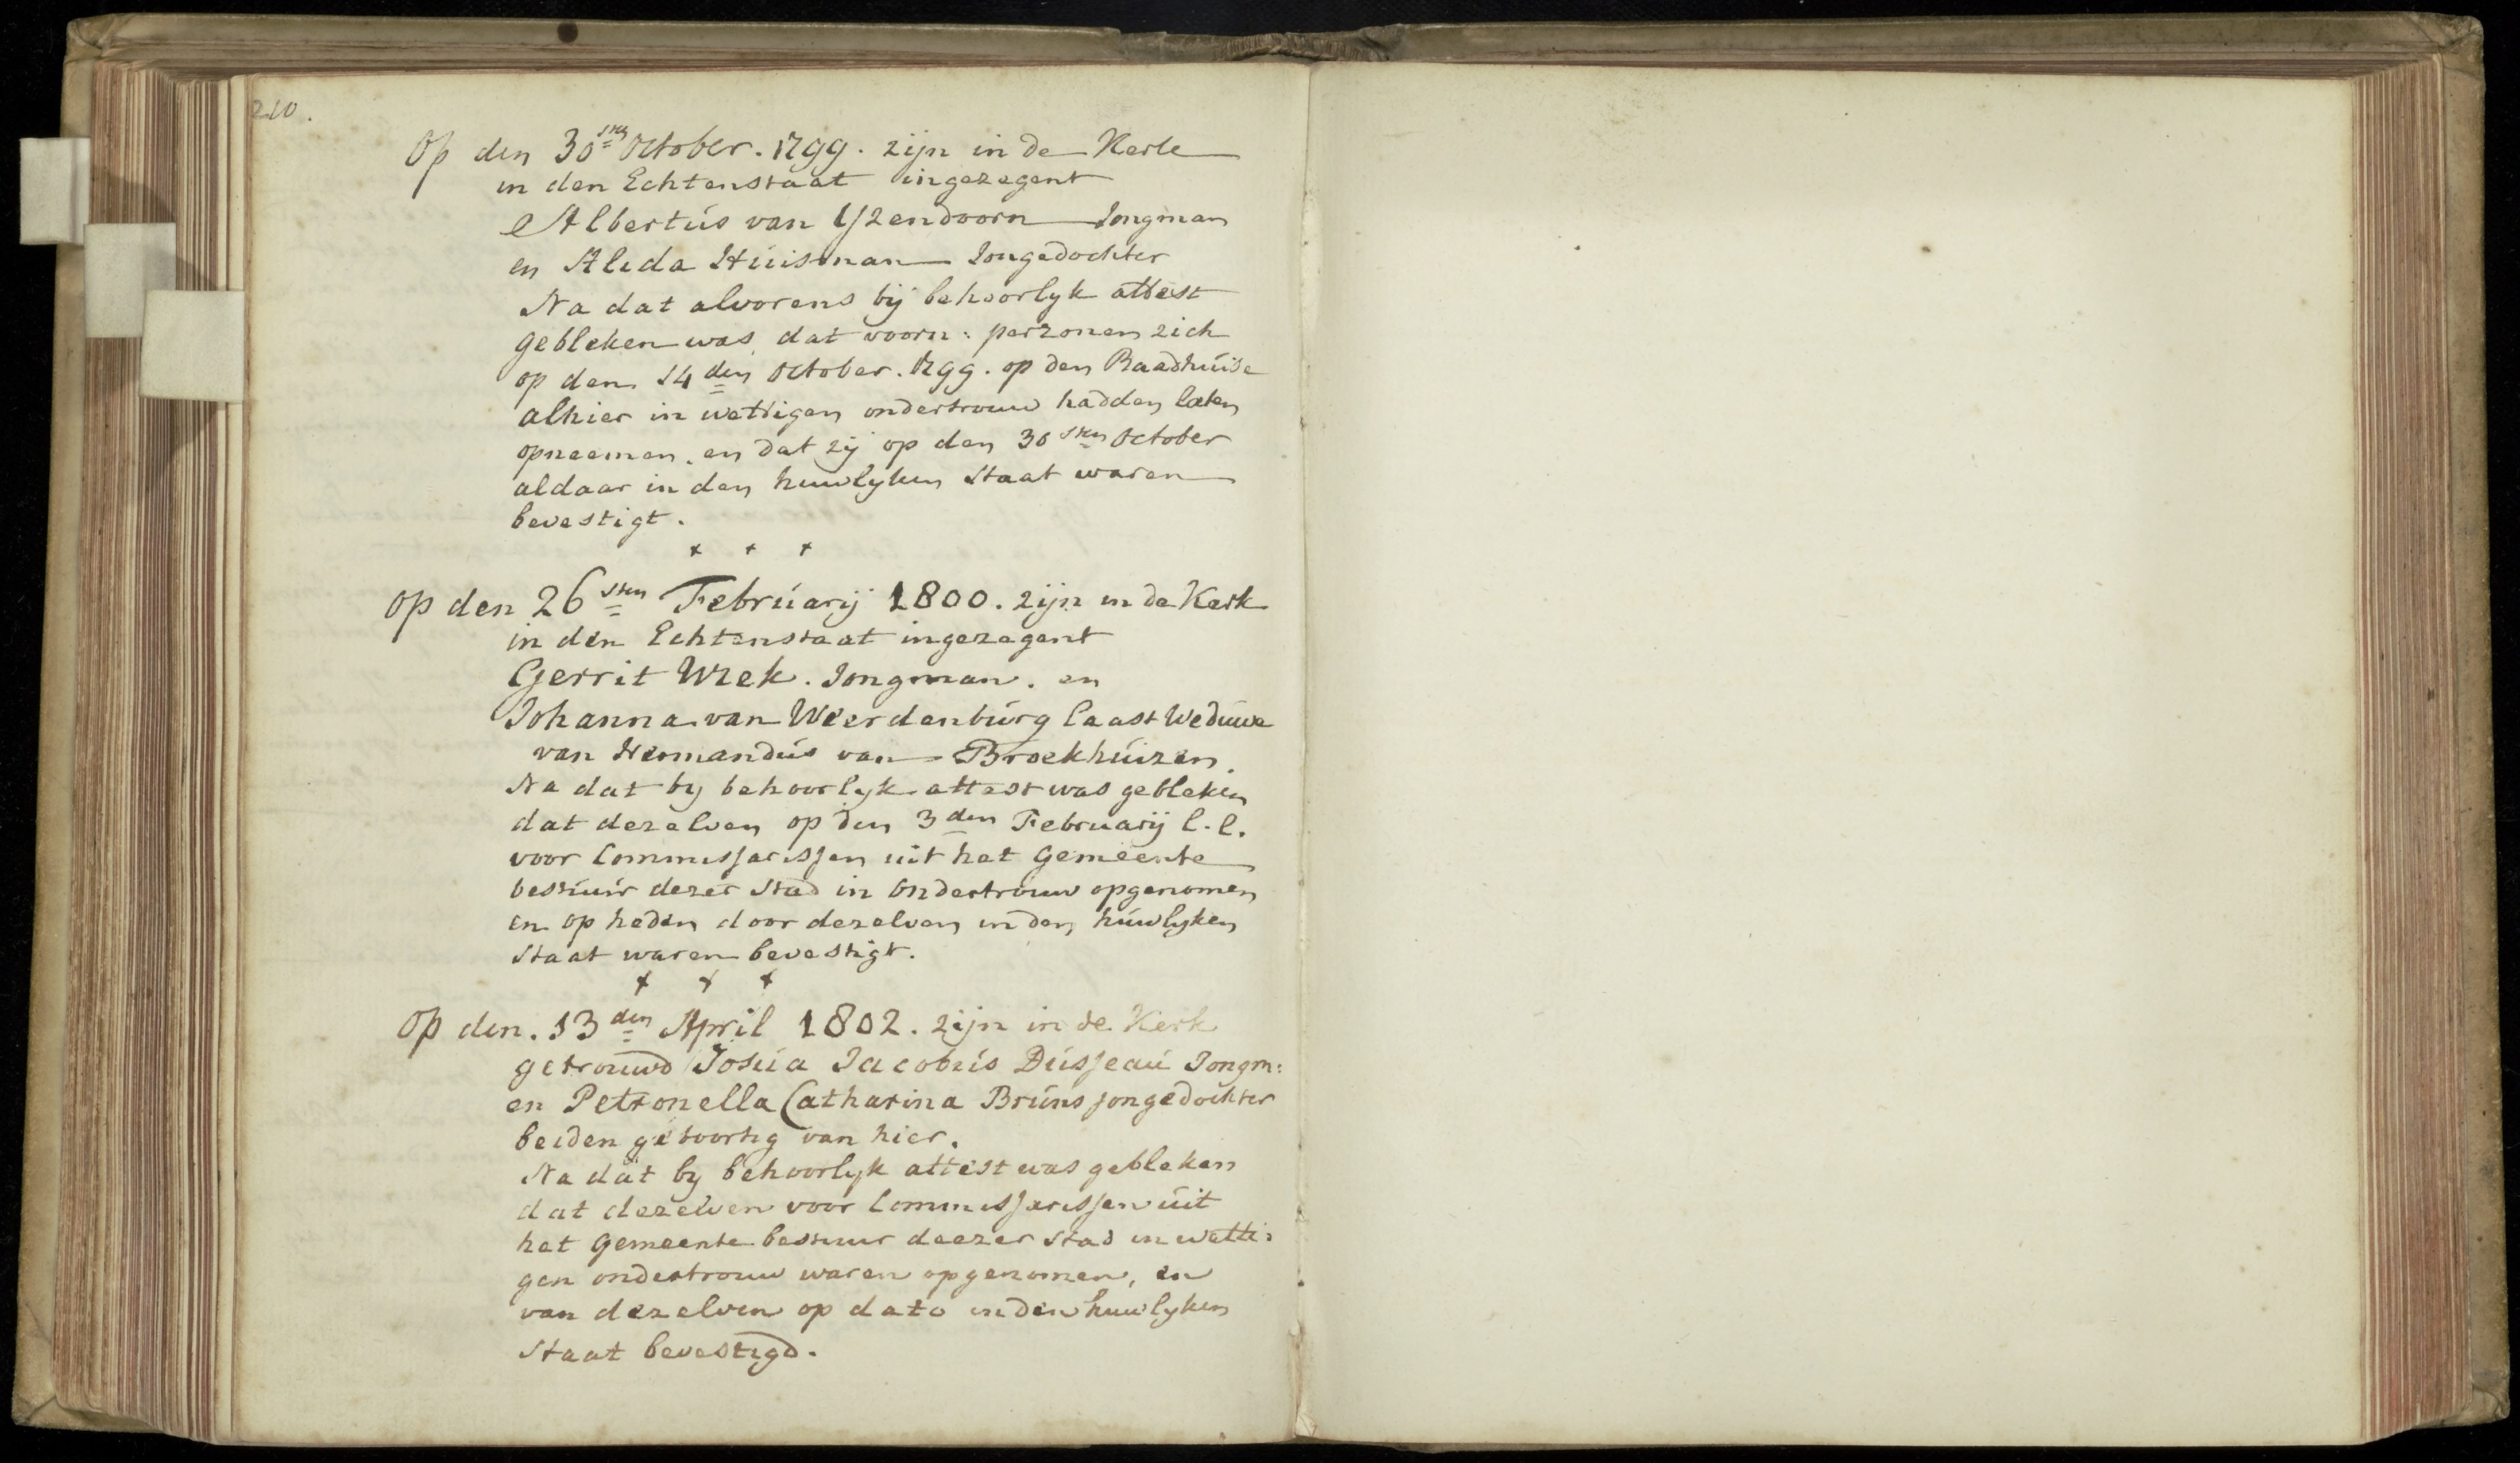 210.
Op den 30sten October. 1799. zijn in de Kerk
in den Echtenstaat ingezegent
Albertús van Yzendoorn Jongman
en Alida Húisman Jongedochter
Na dat alvorens bij behoorlyk attest
gebleken was dat voorn: perzonen zich
op den 14den October. 1799. op den Raadhúise
alhier in wettigen ondertrouw hadden laten
opneemen, en dat zij op den 30sten October
aldaar in den huwlyken Staat waren
bevestigt.
+ + +
Op den 26sten Februarij 1800. zijn in de Kerk
in den Echtenstaat ingezegent
Gerrit Wrek. Jongman. en
Johanna van Weerdenbúrg laast Wedúwe
van Hermandús van Broekhúizen.
Na dat by behoorlyk attest was gebleken
dat dezelven op den 3den Februarij l.l.
voor Commissarissen uit het Gemeente
bestúúr dezer Stad in Ondertrouw opgenomen
en op heden door dezelven in den húwlyken
Staat waren bevestigt.
+ + +
Op den. 13den April 1802. zijn in de Kerk
getrouwd Josúa Jacobús Dússeaú Jongm:
en Petronella Catharina Brúns jongedochter
beiden geboortig van hier.
Na dat by behoorlyk attest was gebleken
dat dezelven voor Commissarissen úit
het Gemeente bestuur deezer Stad in wetti:
gen ondertrouw waren opgenomen, en
van dezelven op dato in den huwlyken
Staat bevestigd.